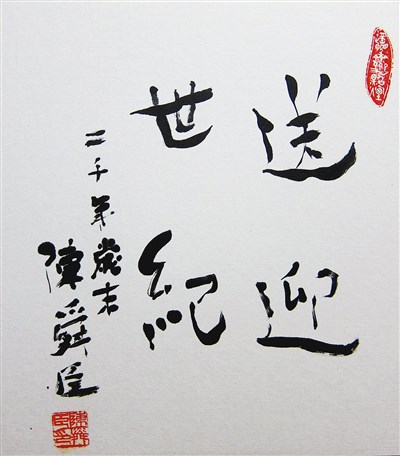 送迎
世紀
二千年歲末
陳舜臣